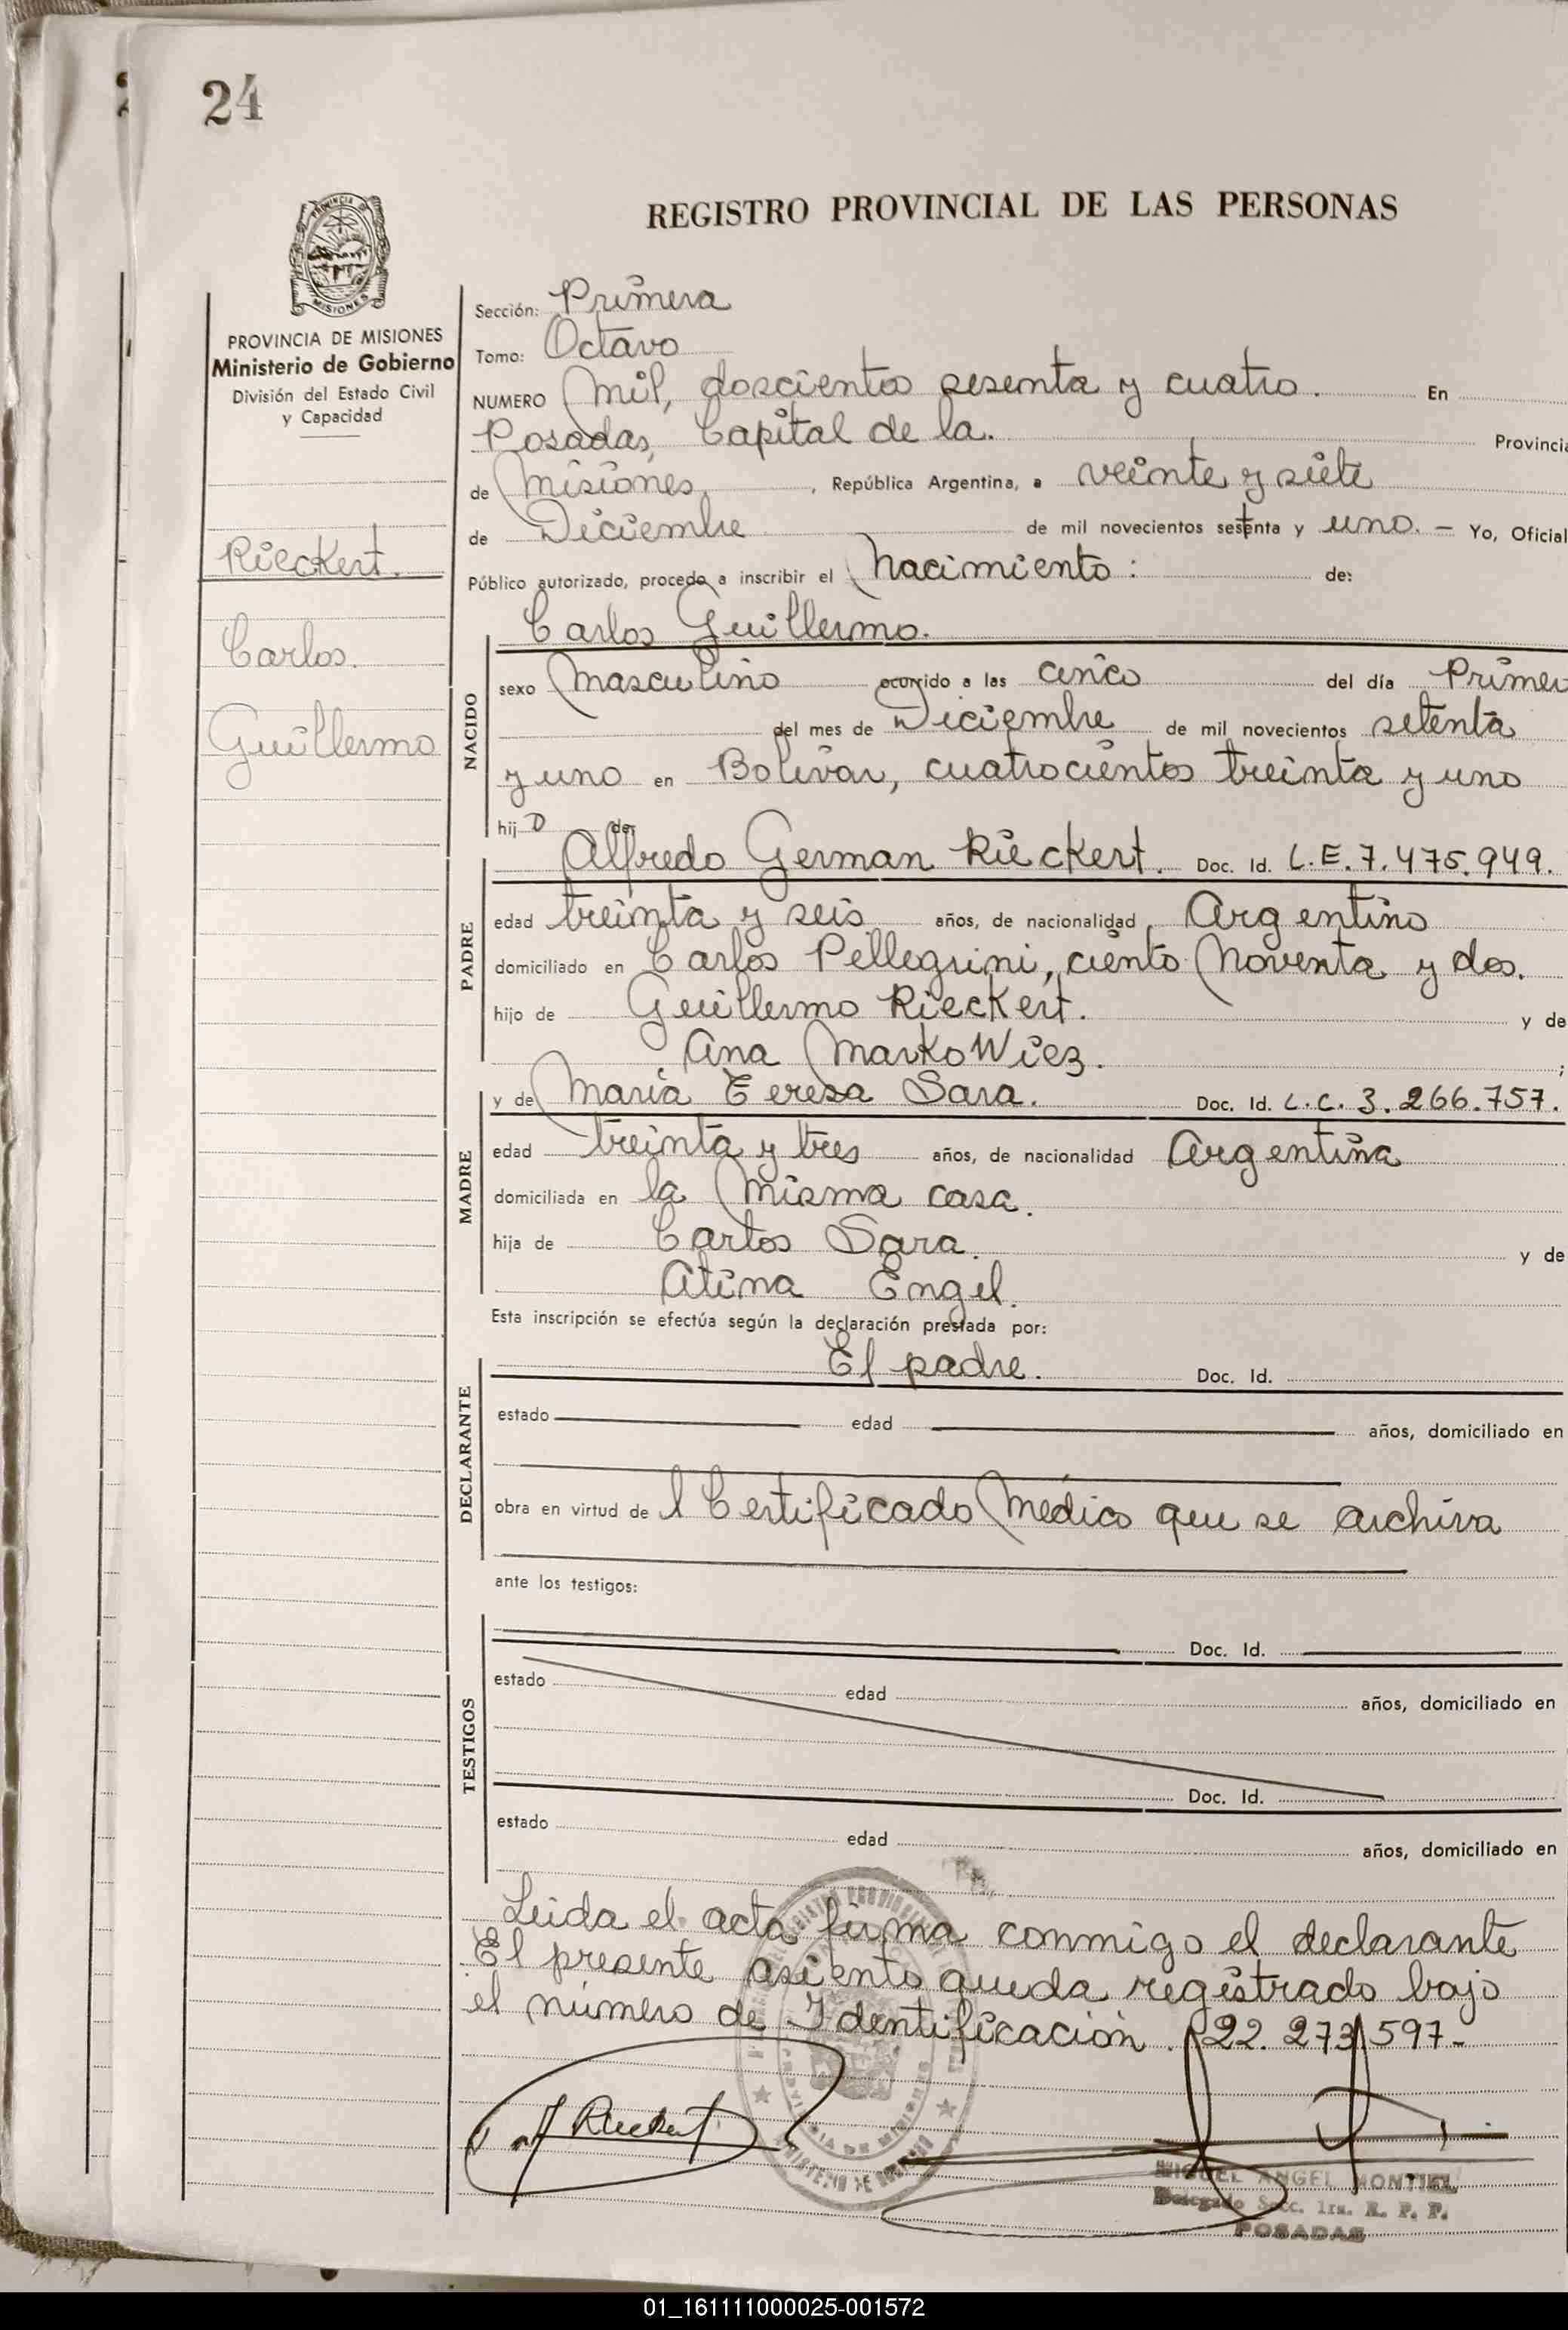 24
REGISTRO PROVINCIAL DE LAS PERSONAS
PROVINCIA DE MISIONES
Ministerio de Gobierno
División del Estado Civil
y Capacidad
Rieckert.
Carlos.
Guillermo
Sección: Primera
Tomo: Octavo
NUMERO Mil, doscientos sesenta y cuatro. En
Posadas, Capital de la. Provincia
de Misiones, República Argentina, a veinte y siete
de Diciembre de mil novecientos setenta y uno. — Yo, Oficial
Público autorizado, procedo a inscribir el Nacimiento: de:
Carlos Guillermo.
NACIDO
sexo Masculino ocurrido a las cinco del día Primer
del mes de Diciembre de mil novecientos setenta
y uno en Bolivar, cuatrocientos treinta y uno
hij o de
PADRE
Alfredo German Rieckert. Doc. Id. L.E. 7.475.949.
edad treinta y seis años, de nacionalidad Argentino
domiciliado en Carlos Pellegrini, ciento noventa y dos.
hijo de Guillermo Rieckert. y de
Ana MarkoWiez. ;
MADRE
y de Maria Teresa Sara. Doc. Id. L.C. 3.266.757.
edad treinta y tres años, de nacionalidad Argentina
domiciliada en la Misma casa.
hija de Carlos Sara. y de
Atina Engel.
Esta inscripción se efectúa según la declaración prestada por:
DECLARANTE
El padre. Doc. Id.
estado edad años, domiciliado en
obra en virtud de l Certificado Médico que se archiva
ante los testigos:
TESTIGOS
Doc. Id.
estado edad años, domiciliado en
Doc. Id.
estado edad años, domiciliado en
Leida el acta firma conmigo el declarante
El presente asiento queda registrado bajo
el número de Identificación. 22.273.597-
Rieckert
MIGUEL ANGEL MONTIEL
Delegado Secc. 1ra. R. P. P.
POSADAS
01_161111000025-001572